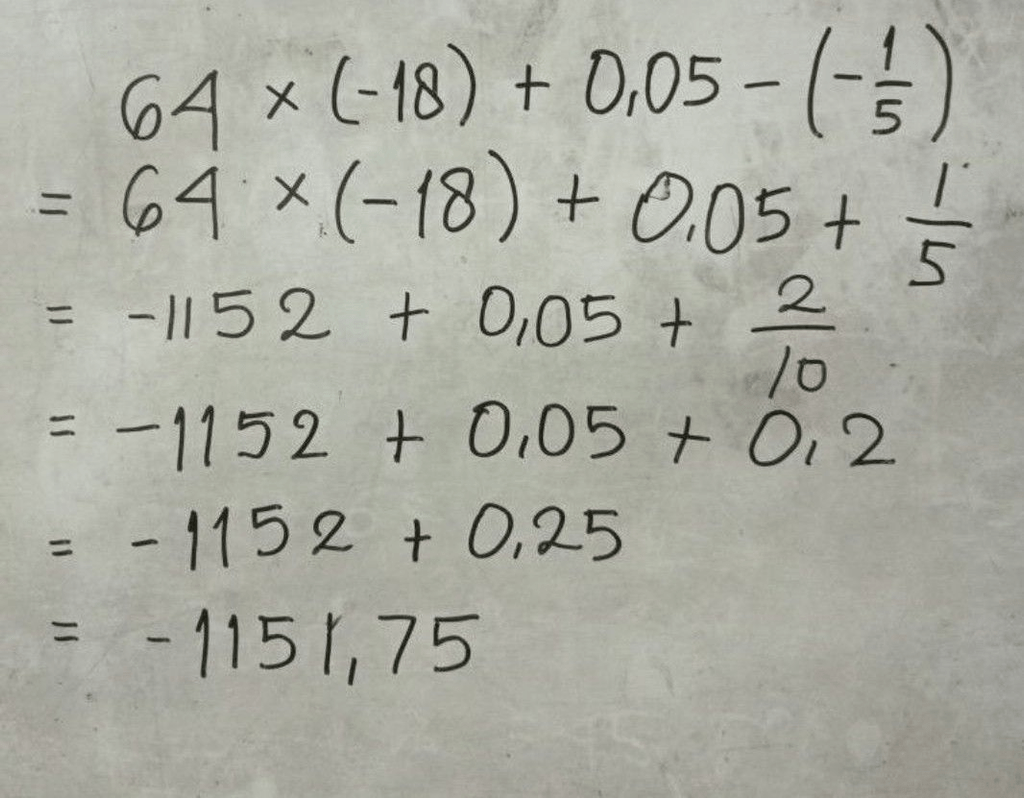 64 × (-18) + 0,05 - (-1/5)
= 64 × (-18) + 0,05 + 1/5
= -1152 + 0,05 + 2/10
= -1152 + 0,05 + 0,2
= -1152 + 0,25
= -1151,75